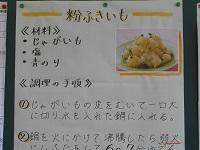 粉ふきいも
≪材料≫
・じゃがいも
・塩
・青のり
≪調理の手順≫
①じゃがいもの皮をむいて一口大
に切り水を入れた鍋に入れる。
②鍋を火にかけて沸騰したら弱火